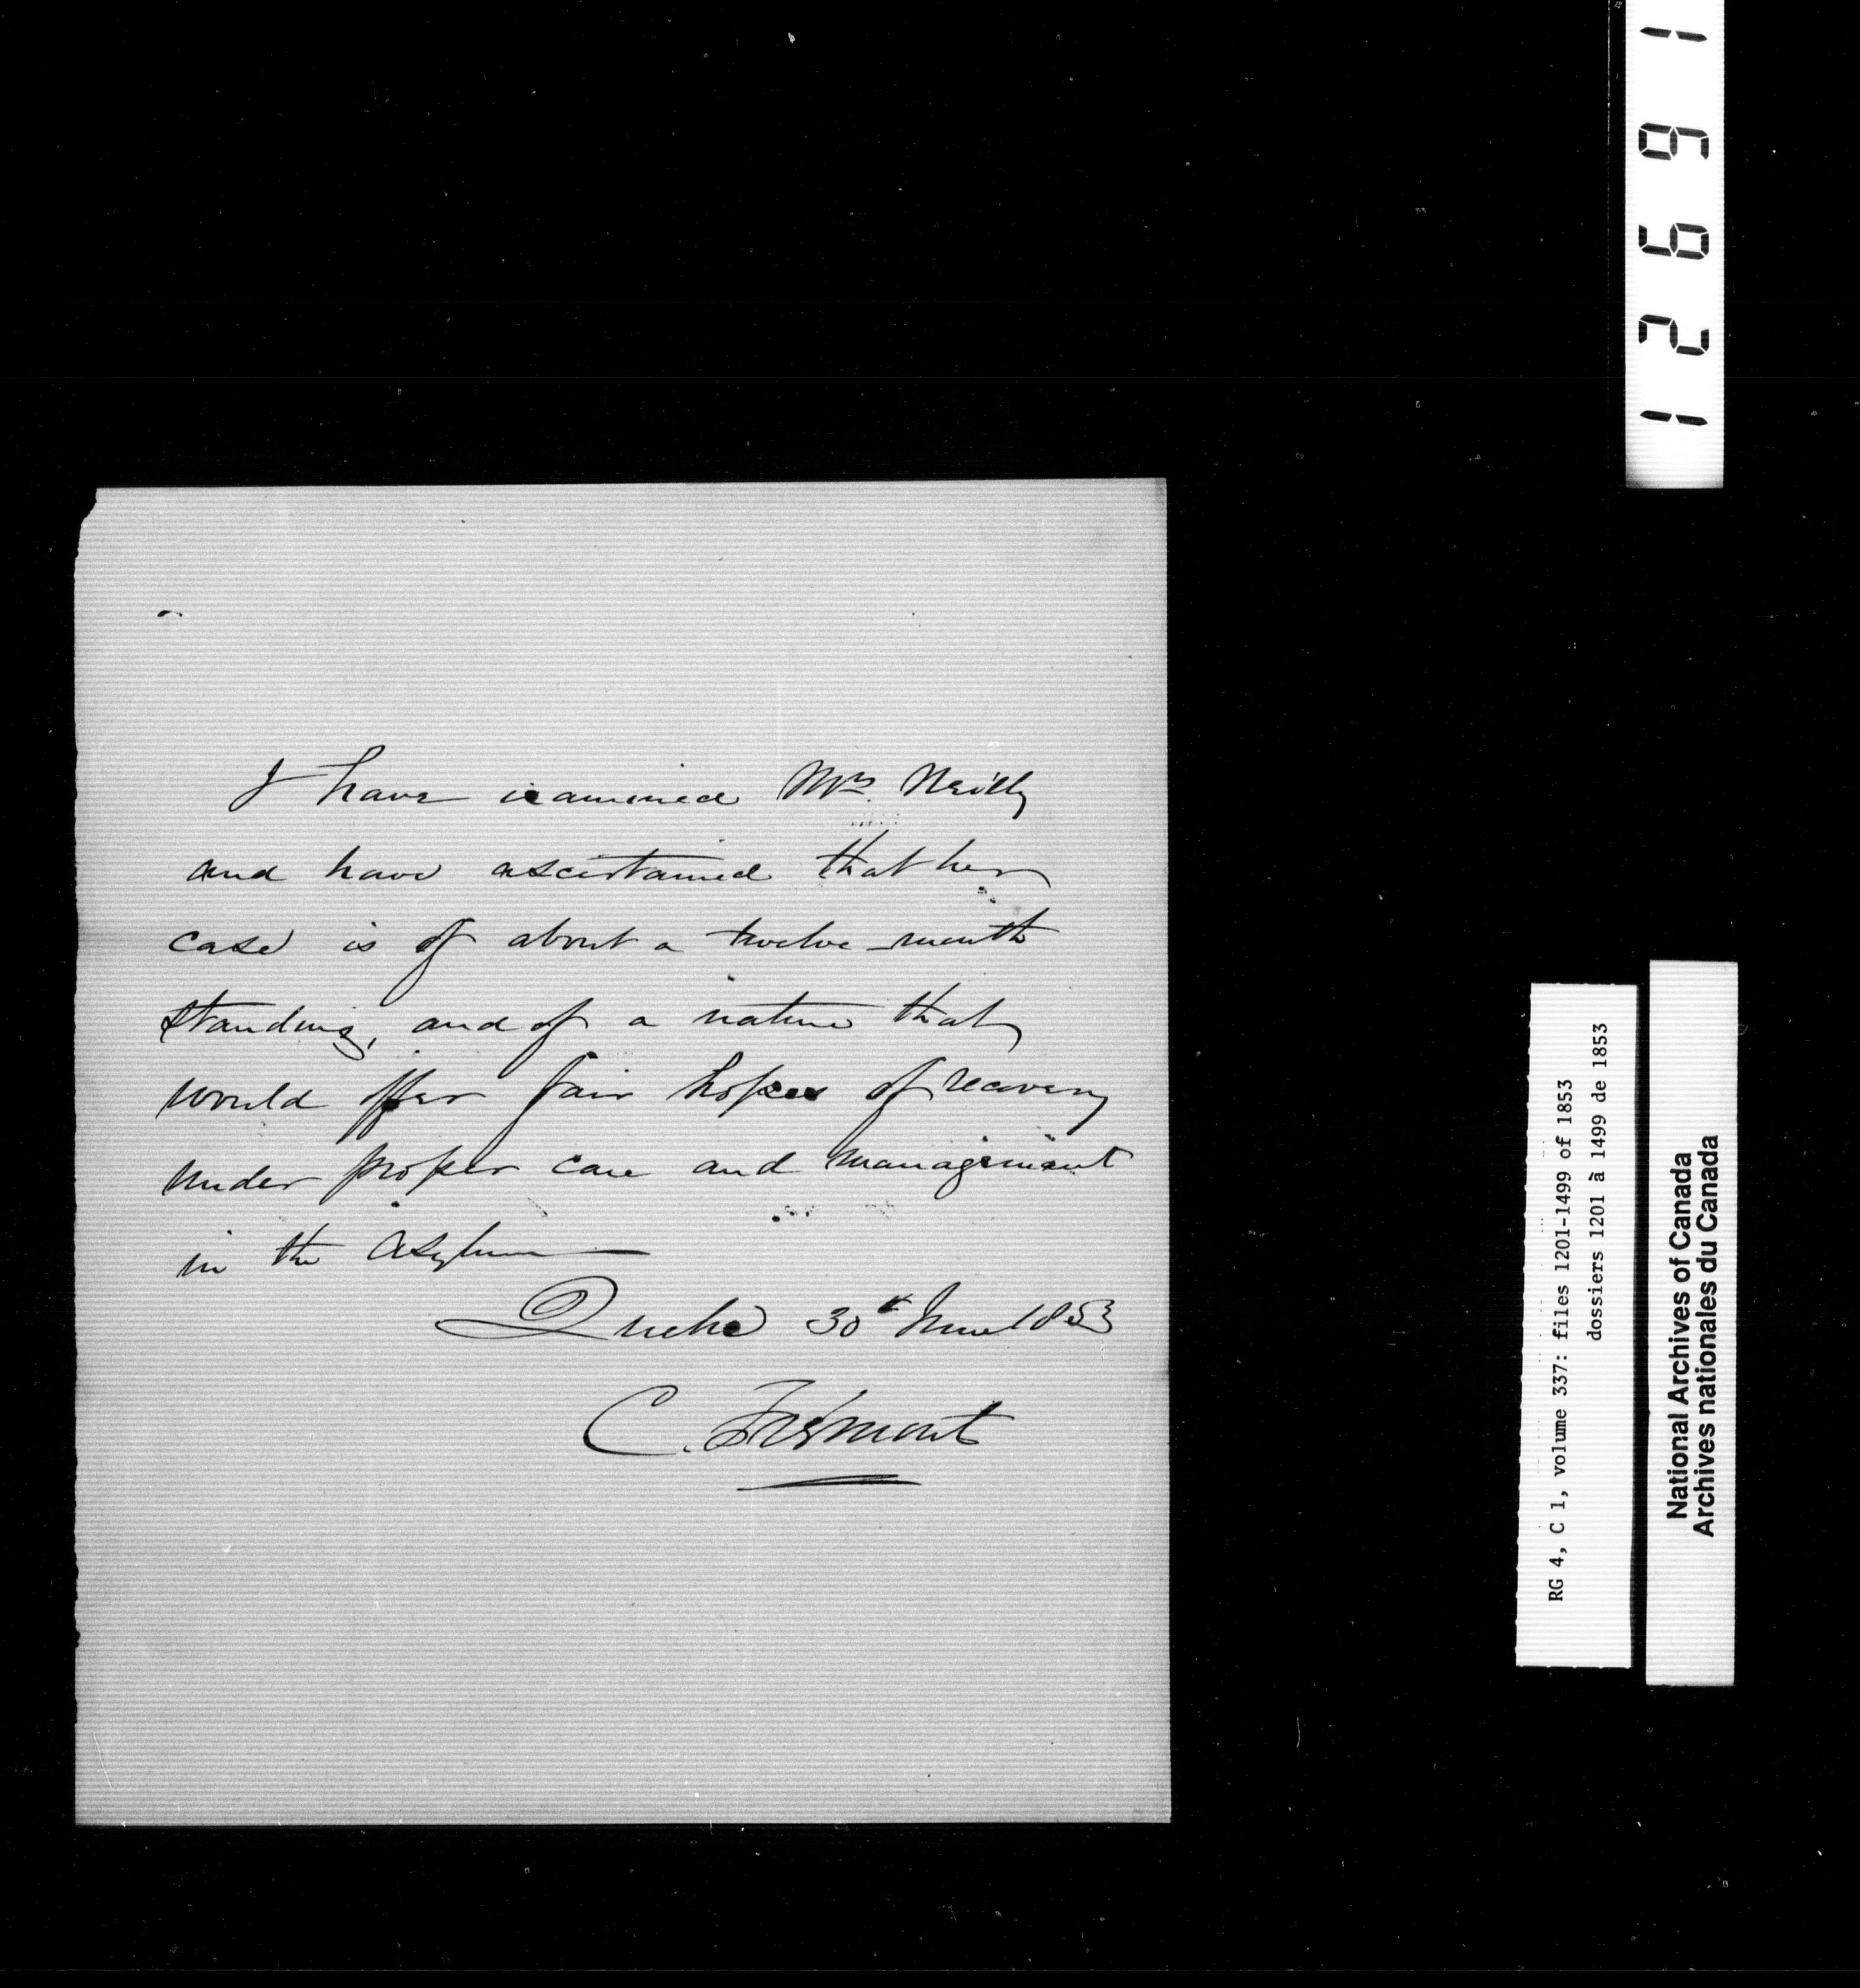 I have examined Mrs. Neilly
and have ascertained that her
case is of about a twelve-month
standing, and of a nature that
would offer fair hopes of recovery
under proper care and management
in the Asylum
Quebec 30th June 1853
C. Frémont
12691
RG 4, C 1, volume 337: files 1201-1499 of 1853
dossiers 1201 à 1499 de 1853
National Archives of Canada
Archives nationales du Canada